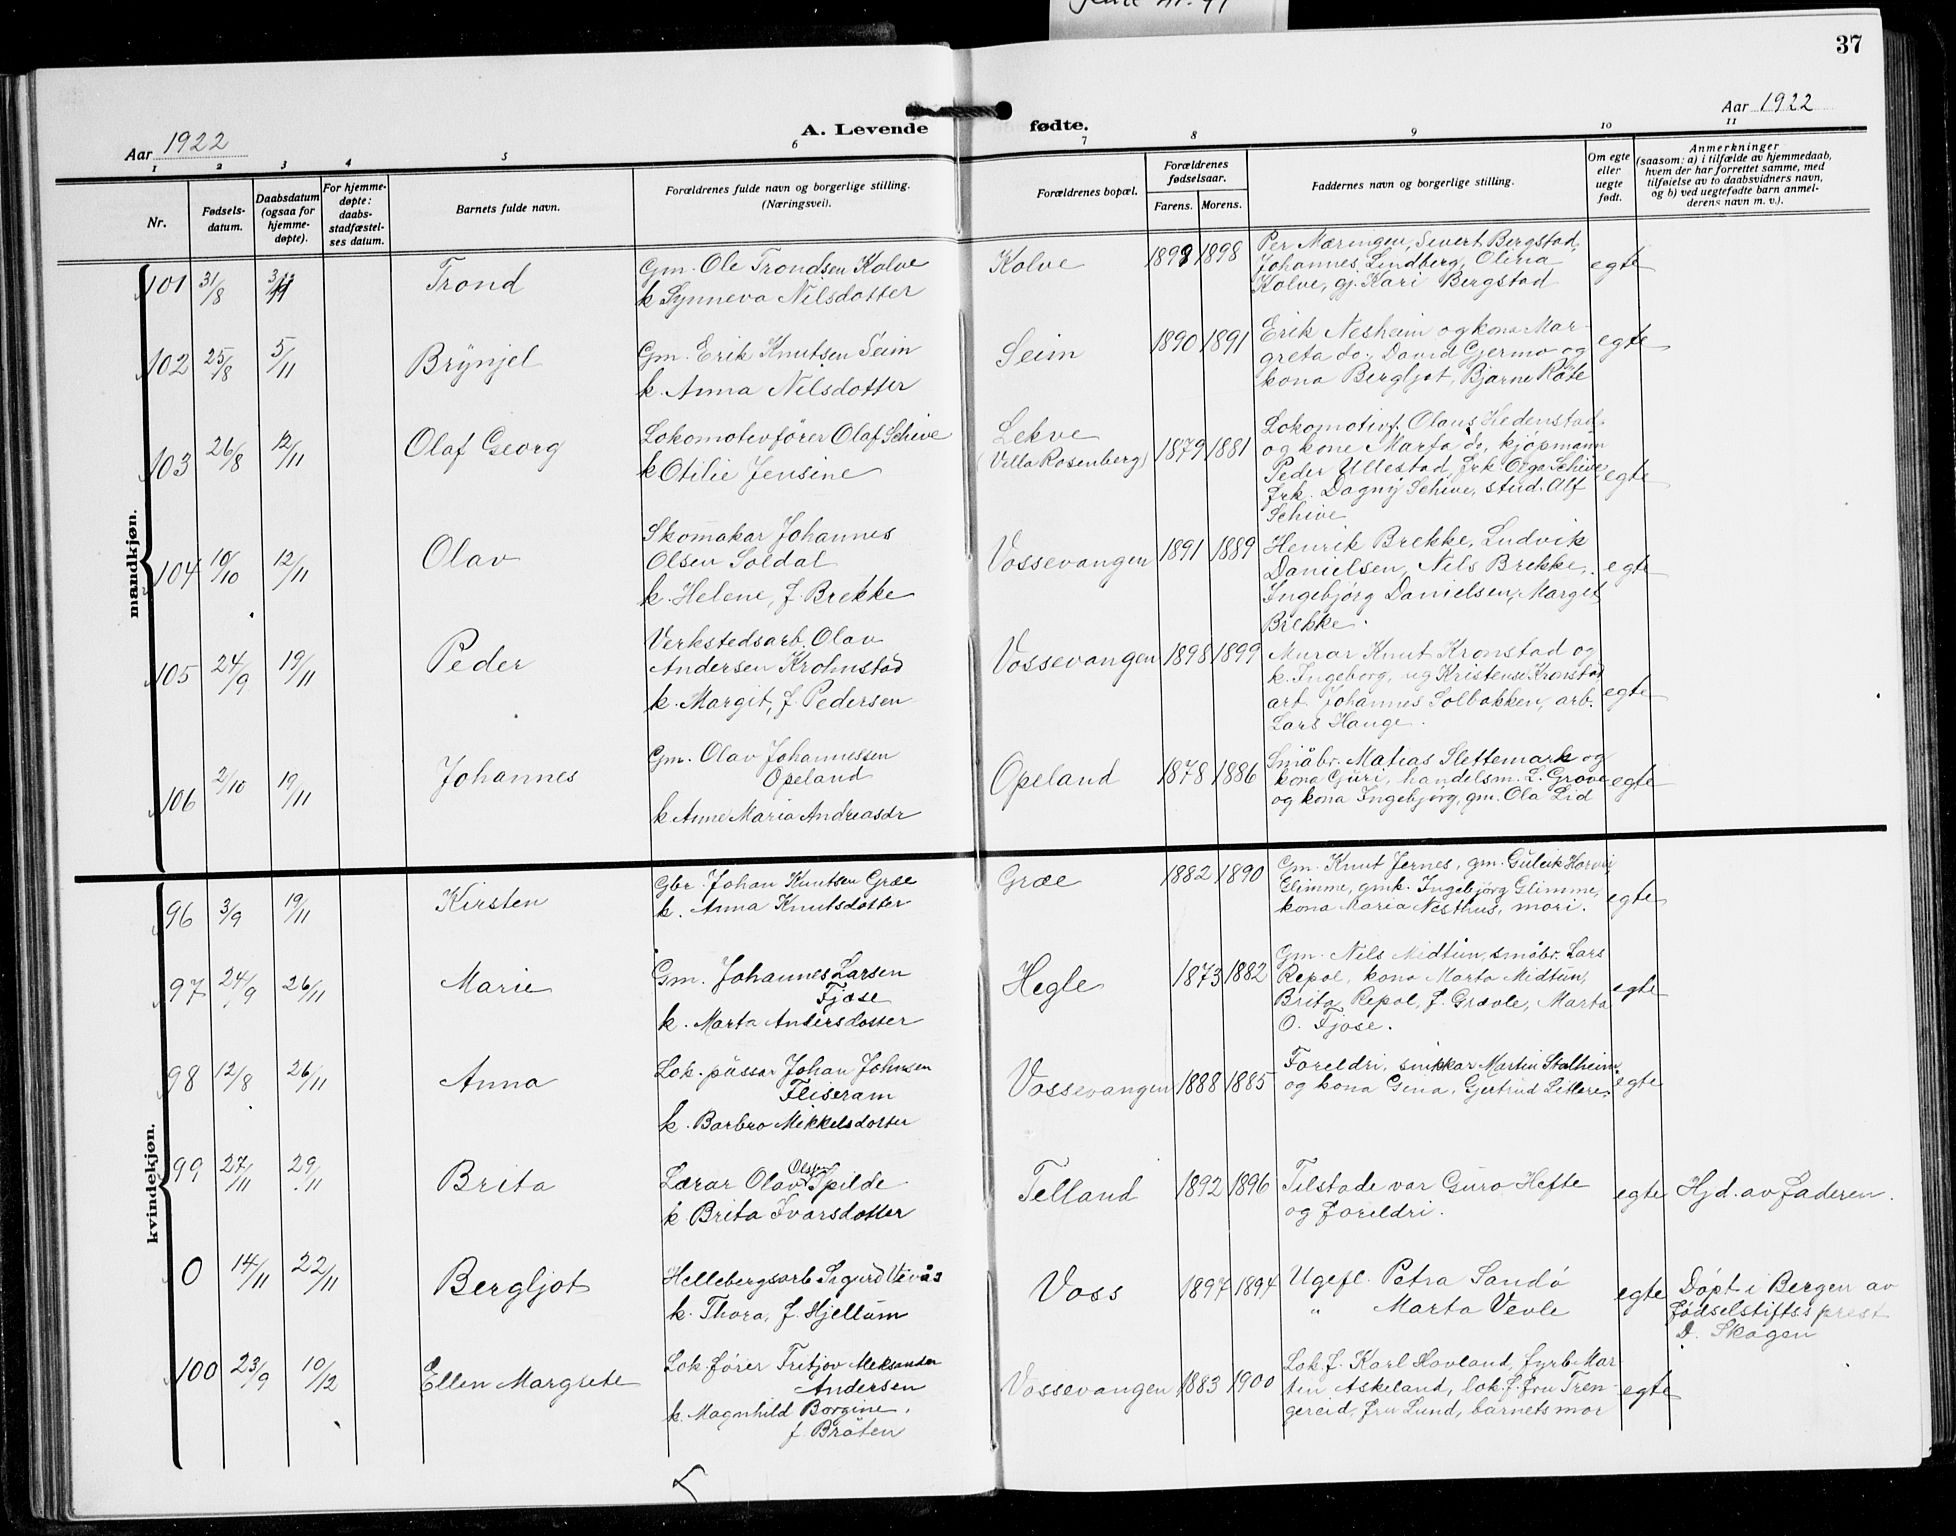 37
Aar 1922
A. Levende fødte.
Aar 1922
1 2 3 4 5 6 7 8 9 10 11
Nr.
Fødsels-
datum.
Daabsdatum
(ogsaa for
hjemme-
døpte).
For hjemme-
døpte:
daabs-
stadfæstel-
ses datum.
Barnets fulde navn.
Forældrenes fulde navn og borgerlige stilling.
(Næringsvei).
Forældrenes bopæl.
Forældrenes
fødselsaar.
Farens. Morens.
Faddernes navn og borgerlige stilling.
Om egte
eller
uegte
født.
Anmerkninger
(saasom: a) i tilfælde av hjemmedaab,
hvem der har forrettet samme, med
tilføielse av to daabsvidners navn,
og b) ved uegtefødte barn anmel-
derens navn m. v.).
mandkjøn.
101 31/8 Trond
Gm. Ole Trondsen Kolve
k Synneva Nilsdotter
Kolve 1898 1898
Per Mæringen, Sivert Bergstad,
Johannes Lindberg, Olina
Kolve, gj. Kari Bergstad
egte
102 25/8 5/11 Brynjel
Gm. Erik Knutsen Seim
k. Anna Nilsdotter
Seim 1890 1891
Erik Nesheim og kona Mar-
greta do., David Gjermo og
kona Bergljot, Bjarne Røte
egte
103 26/8 12/11 Olaf Georg
Lokomotivfører Olaf Schive
k Otilie Jensine
Lekve
(Villa Rosenberg) 1879 1881
Lokomotivf. Olaus Hedenstad
og kone Marta do, kjøpmann
Peder Ullestad, frk Olga Schive,
frk. Dagny Schive, stud. Alf
Schive
egte
104 10/10 12/11 Olav
Skomakar Johannes
Olsen Soldal
k. Helene, f. Brekke
Vossevangen 1891 1889
Henrik Brekke, Ludvik
Danielsen, Nils Brekke,
Ingebjørg Danielsen, Margit
Brekke.
egte
105 24/9 19/11 Peder
Verkstedsarb. Olav
Andersen Krohnstad
k. Margit, f. Pedersen
Vossevangen 1898 1899
Murar Knut Kronstad og
k. Ingeborg, ug Kristense Kronstad,
arb. Johannes Solbakken, arb.
Lars Hauge.
egte
106 2/10 19/11 Johannes
Gm. Olav Johannessen
Opeland
k. Anne Maria Andreasdr
Opeland 1878 1886
Småbr. Matias Slettemark og
kona Guri, handelsm. L. Grove
og kona Ingebjørg, gm. Ola Lid
egte
kvindekjøn.
96 3/9 19/11 Kirsten
Gbr. Johan Knutsen Græe
k. Anna Knutsdotter
Græe 1882 1890
Gm. Knut Jernes, gm. Guleik Horvei
Glimme, gmk. Ingebjørg Glimme,
kona Maria Nesthus, mori.
egte
97 24/9 26/11 Marie
Gm. Johannes Larsen
Fjøse
k. Marta Andersdotter
Hegle 1873 1882
Gm. Nils Midtun, småbr. Lars
Repål, kona Marta Midtun,
Brita Repål, f. Grevle, Marta
O. Fjose.
egte
98 12/8 26/11 Anna
Lok. pussar Johan Johnsen
Fliseram
k. Barbro Mikkelsdotter
Vossevangen 1888 1885
Foreldri, snikkar Martin Stalheim
og kona Gina, Gjertrud Litlere,
egte
99 27/11 29/11 Brita
Lærar Olav Olsen Spilde
k Brita Ivarsdotter
Telland 1892 1896
Tilstade var Guro Hefte
og foreldri.
egte Hjd. av faderen.
0 14/11 22/11 Bergljot
Hellebergsarb Sigurd Vevås
k. Thora, f Hjellum
Voss 1897 1894
Ugefl. Petra Sandø
" Marta Vevle
egte
Døpt i Bergen av
fødselstiftss prest
D. Skagen
100 23/9 10/12 Ellen Margrete
Lok. fører Fritjov Aleksander
Andersen
k. Magnhild Borgine,
f. Bråten
Vossevangen 1883 1900
Lok. f. Karl Hovland, fyrb Mar
tin Askeland, lok. f. fru Tren-
gereid, fru Lund, barnets mor
egte